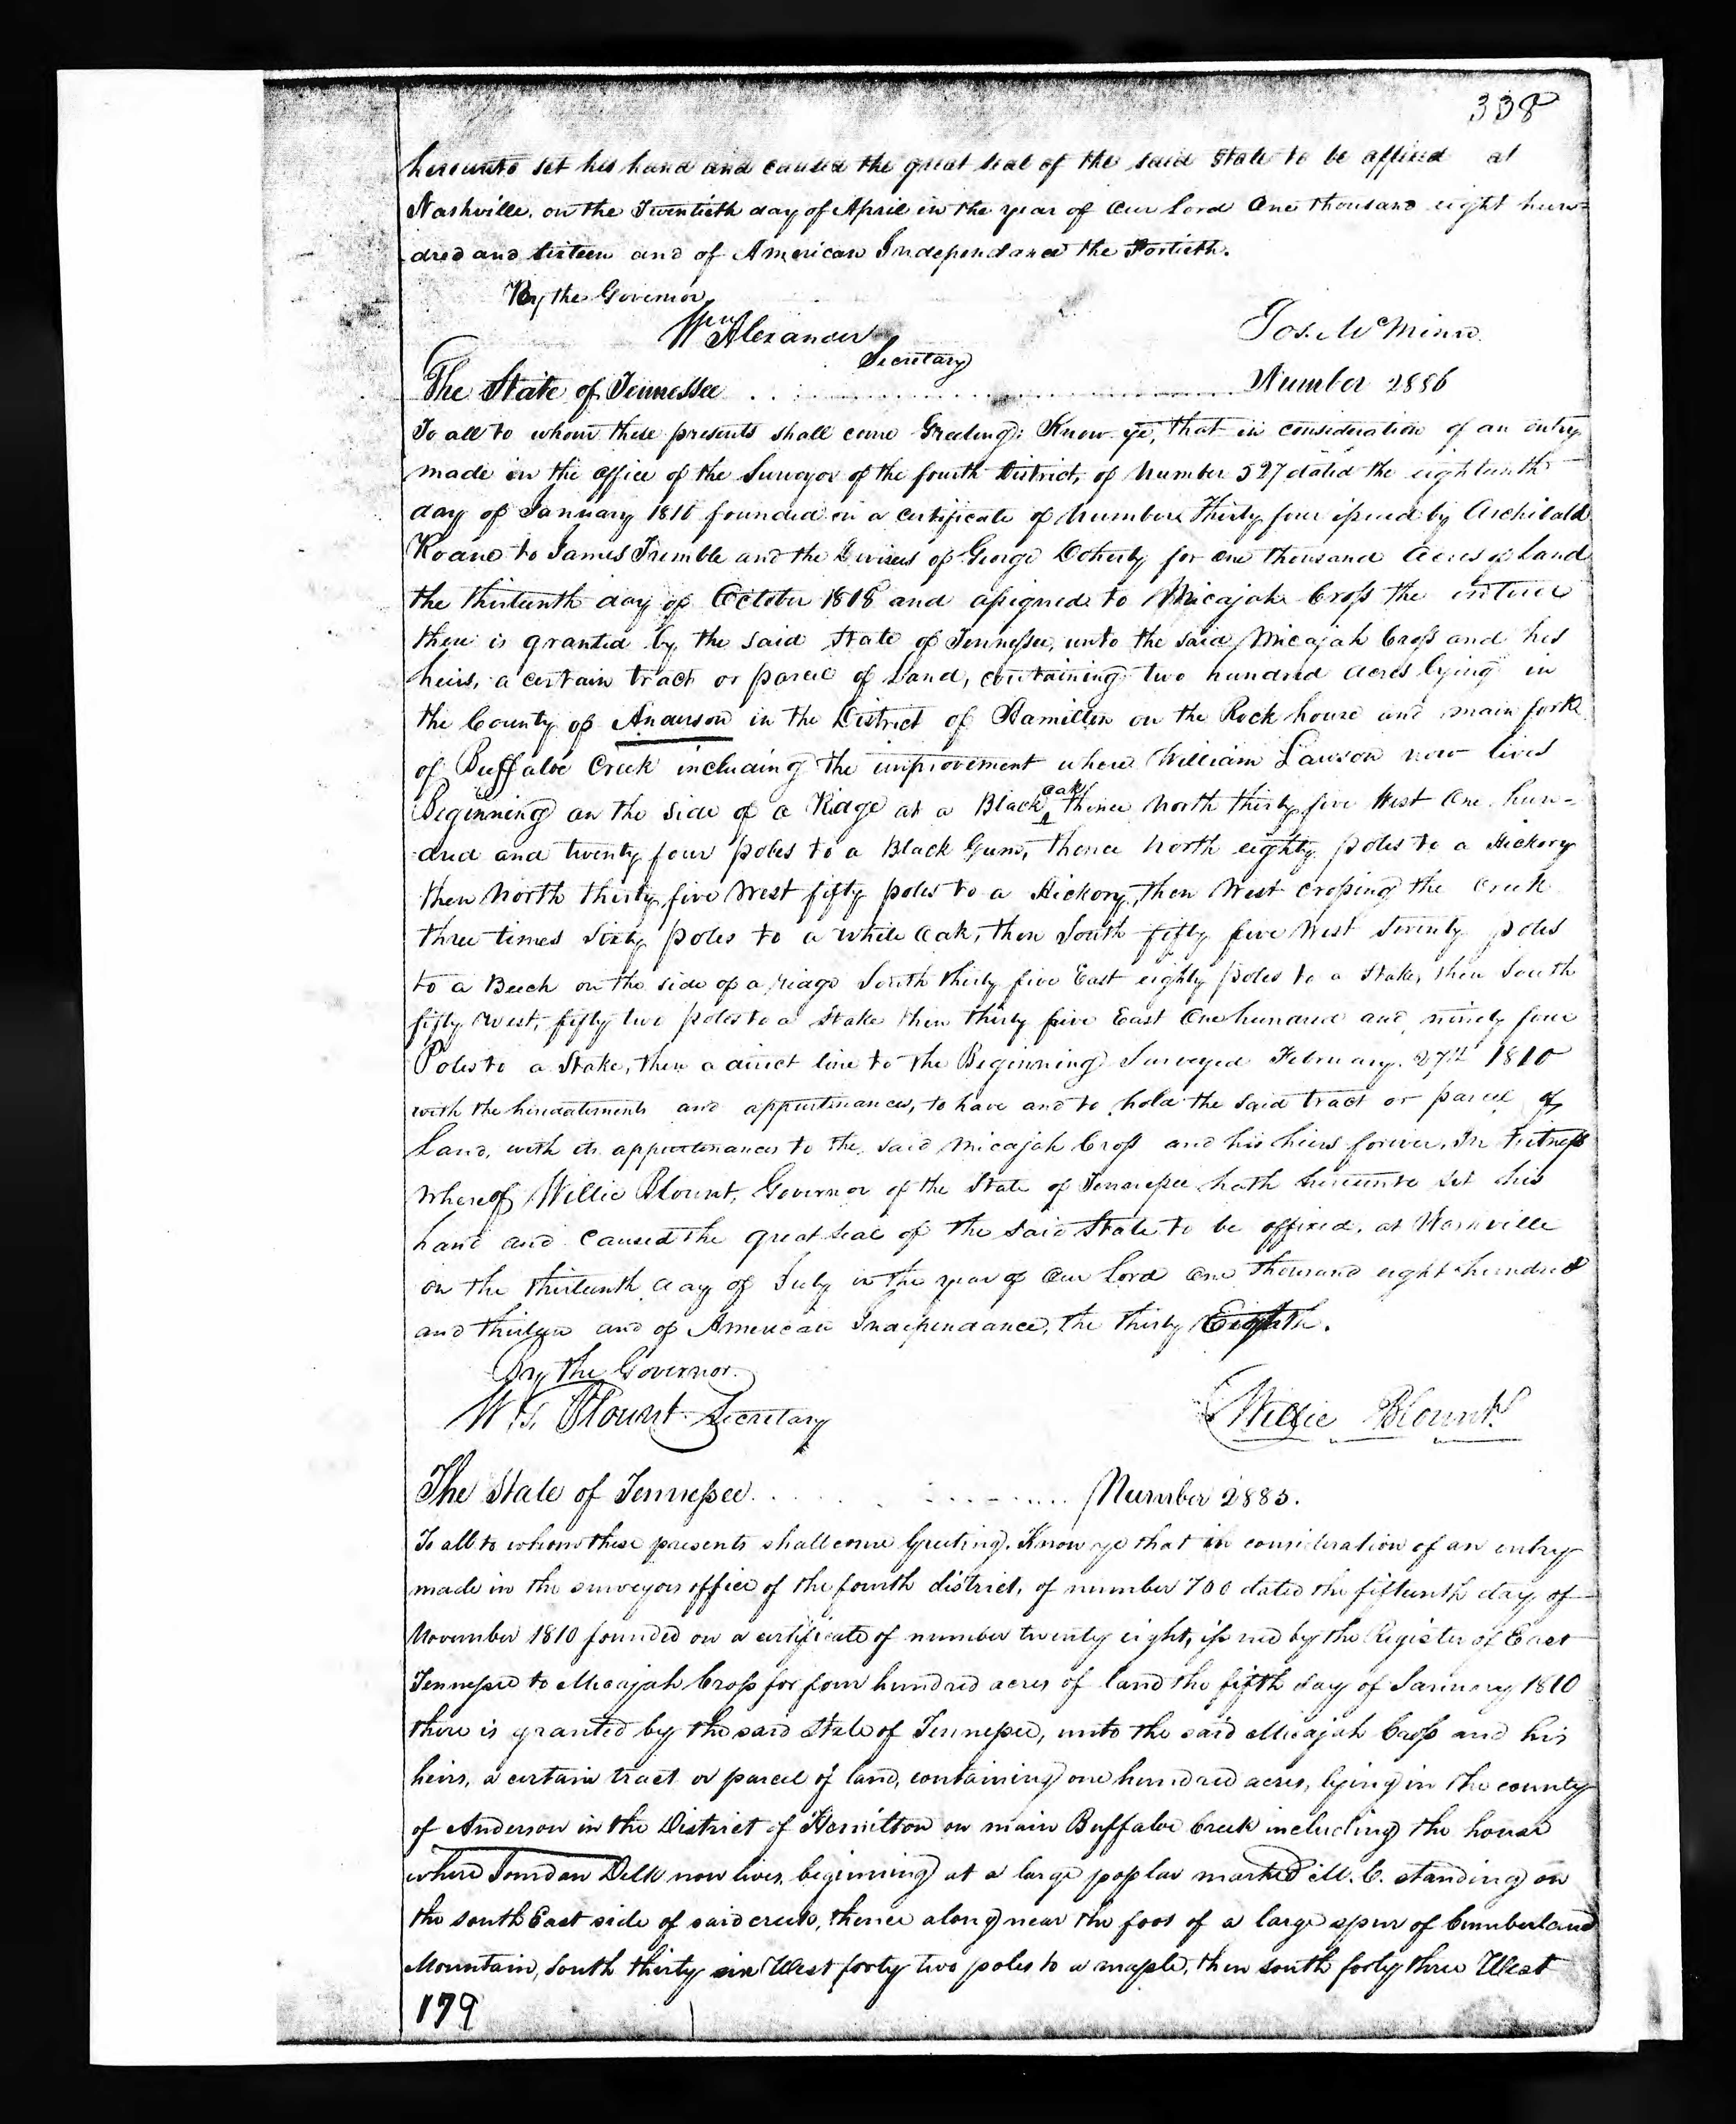 338
hereunto set his hand and caused the great seal of the said State to be affixed at
Nashville, on the Twentieth day of April in the year of our Lord One thousand eight hun=
dred and sixteen and of American Independance the Fortieth.
By the Governor
Wm Alexander
Secretary
Jos. McMinn
The State of Tennessee . . . Number 2886
To all to whom these presents shall come Greeting: Know ye, that in consideration of an entry
made in the office of the Surveyor of the fourth District, of Number 527 dated the eighteenth
day of January 1810 founded on a certificate of number Thirty four issued by Archibald
Roane to James Trimble and the Devisees of George Doherty for one thousand acres of Land
the thirteenth day of October 1808 and assigned to Micajah Cross the
there is granted by the said State of Tennessee, unto the said Micajah Cross and his
heirs, a certain tract or parcel of Land, containing two hundred acres lying in
the County of Anderson in the District of Hamilton on the Rock house and main fork
of Buffaloe Creek including the improvement where William Lawson now lives
Beginning on the side of a Ridge at a Black oak, thence North thirty five West One hun=
dred and twenty four poles to a Black Gum, thence North eighty poles to a Hickory
then North thirty five West fifty poles to a Hickory, then West crossing the creek
three times sixty poles to a white oak, then South fifty five West seventy poles
to a Beech on the side of a ridge South thirty five East eighty poles to a Stake, then South
fifty West, fifty two poles to a Stake then thirty five East One hundred and ninety four
Poles to a Stake, then a direct line to the Beginning Surveyed February 27th 1810
with the hereditaments and appurtenances, to have and to hold the said tract or parcel of
Land, with its appurtenances to the said Micajah Cross and his heirs forever. In Witness
Whereof Willie Blount, Governor of the State of Tennessee hath hereunto set his
hand and caused the great seal of the said State to be affixed, at Nashville
on the thirteenth day of July in the year of our Lord one thousand eight hundred
and thirteen and of American Independance, the thirty Eighth.
By the Governor.
W. G. Blount Secretary
Willie Blount
The State of Tennessee . . . Number 2885.
To all to whom these presents shall come Greeting. Know ye that in consideration of an entry
made in the surveyors office of the fourth district, of number 700 dated the fifteenth day of
November 1810 founded on a certificate of number twenty eight, issued by the Register of East
Tennessee to Micajah Cross for four hundred acres of land the fifth day of January 1810
there is granted by the said State of Tennessee, unto the said Micajah Cross and his
heirs, a certain tract or parcel of land, containing one hundred acres, lying in the county
of Anderson in the District of Hamilton on main Buffaloe Creek including the house
where Jourdan Delk now lives, beginning at a large poplar marked M. C. standing on
the south East side of said creek, thence along near the foot of a large spur of Cumberland
Mountain, South thirty six West forty two poles to a maple, then south forty three West
179